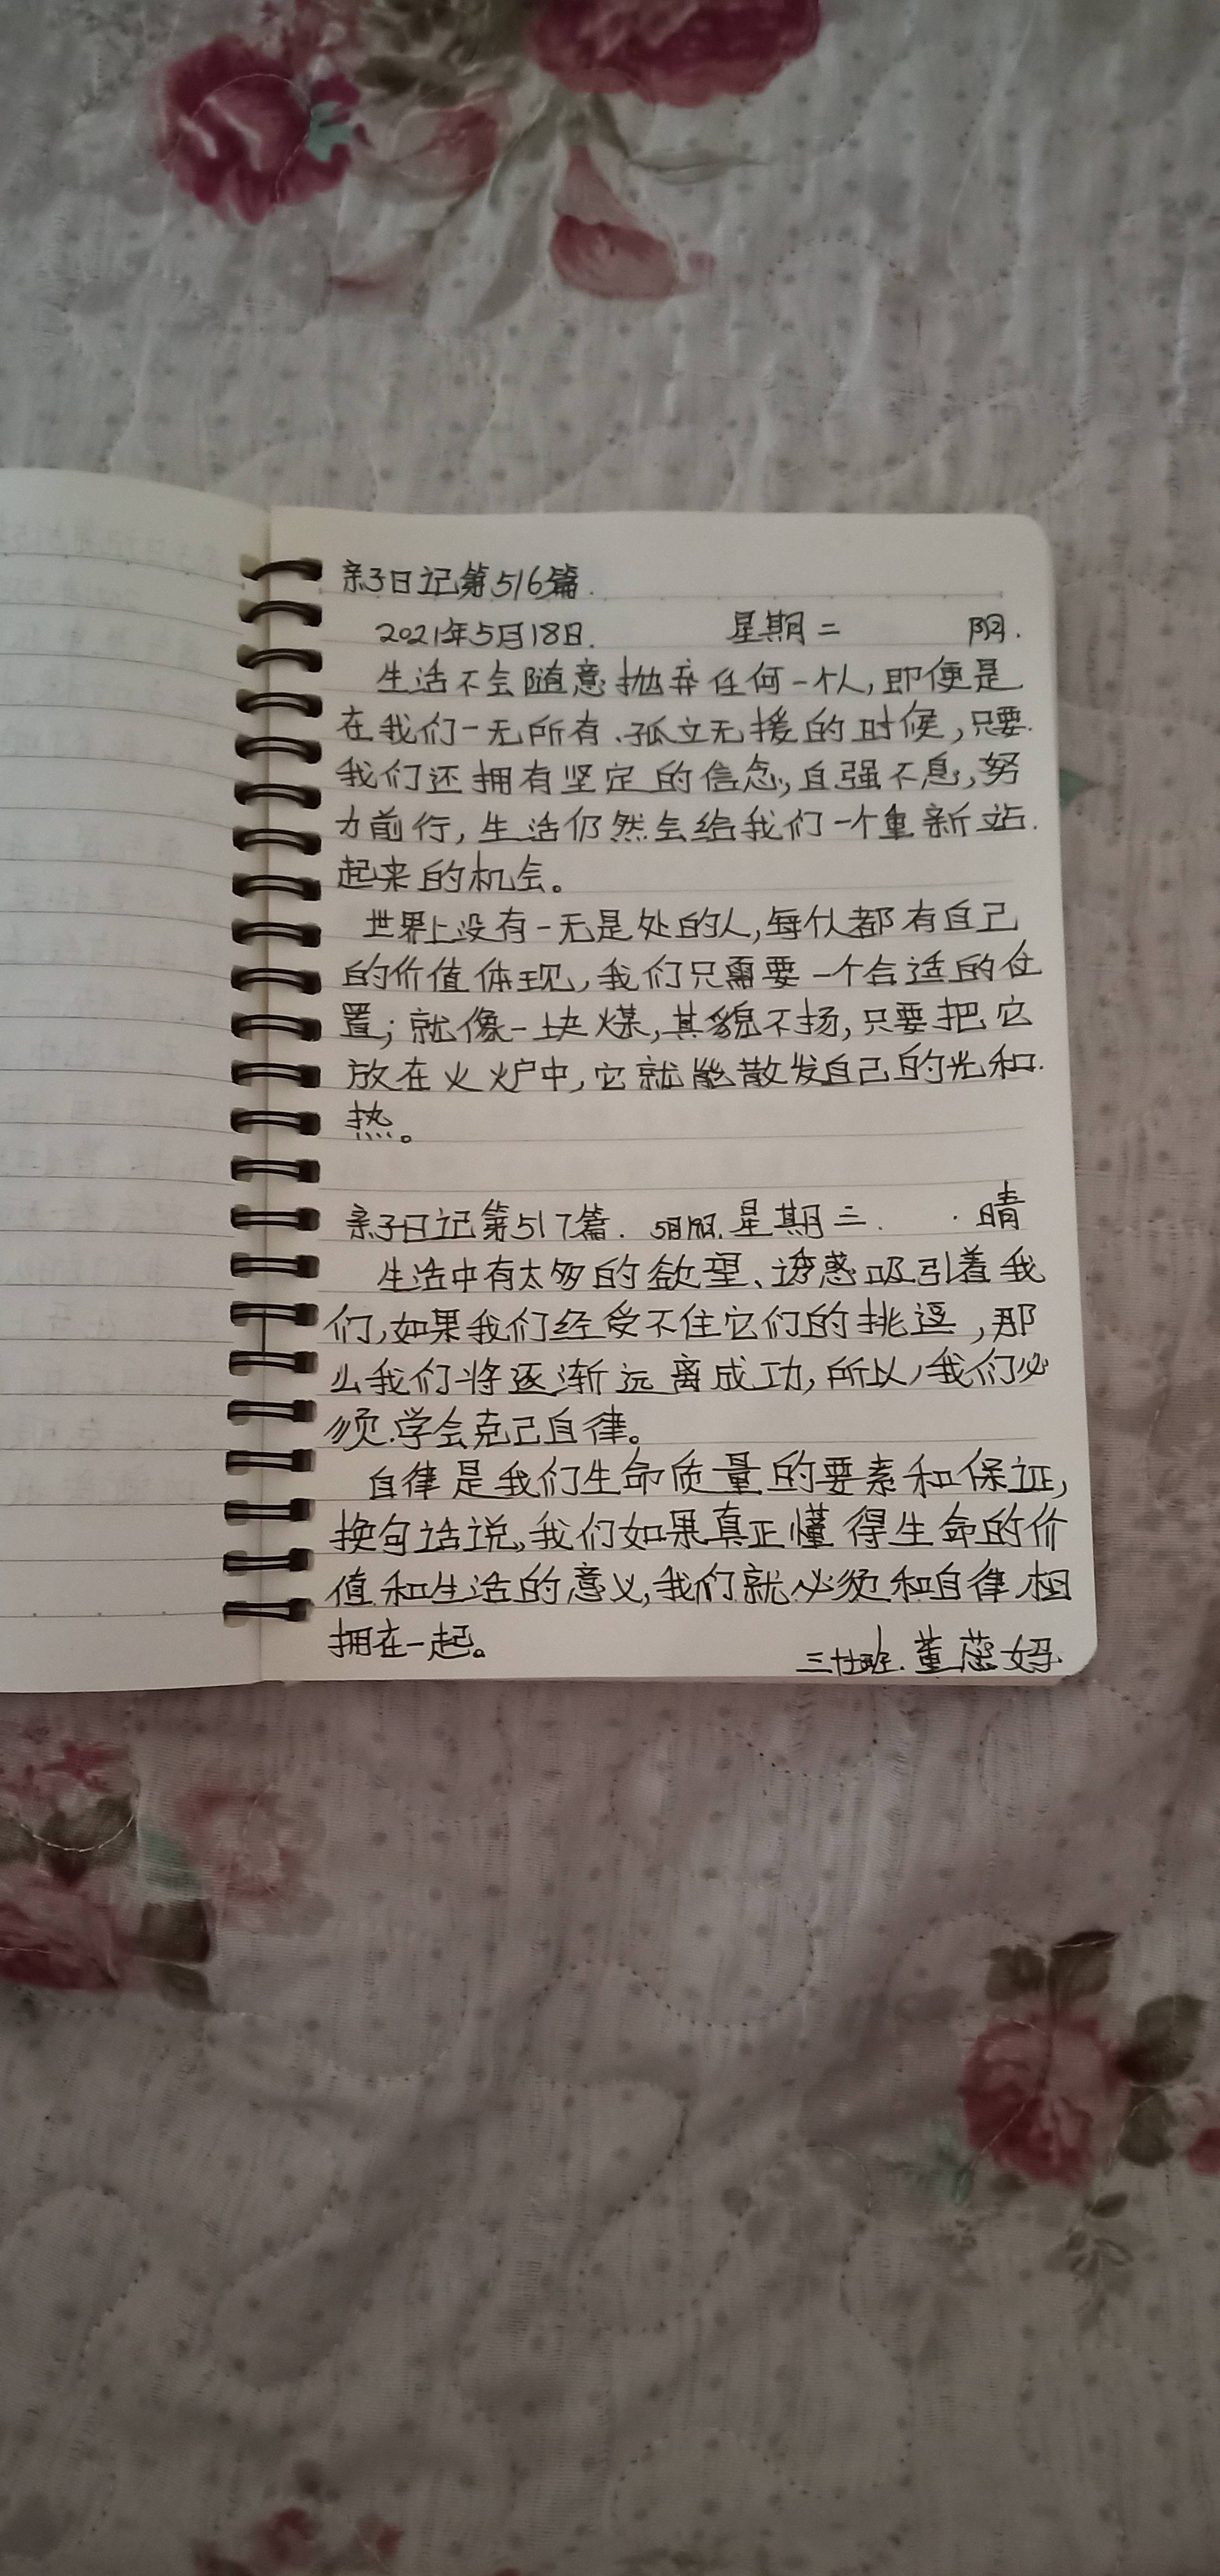 亲子日记第516篇.
2021年5月18日. 星期二 阴.
生活不会随意抛弃任何一个人,即便是
在我们一无所有、孤立无援的时候,只要
我们还拥有坚定的信念,自强不息,努
力前行,生活仍然会给我们一个重新站
起来的机会。
世界上没有一无是处的人,每个人都有自己
的价值体现,我们只需要一个合适的位
置;就像一块煤,其貌不扬,只要把它
放在火炉中,它就能散发自己的光和
热。
亲子日记第517篇. 5月19日. 星期三. 晴
生活中有太多的欲望、诱惑吸引着我
们,如果我们经受不住它们的挑逗,那
么我们将逐渐远离成功,所以,我们必
须学会克己自律。
自律是我们生命质量的要素和保证,
换句话说,我们如果真正懂得生命的价
值和生活的意义,我们就必须和自律相
拥在一起。
董蕊妈.